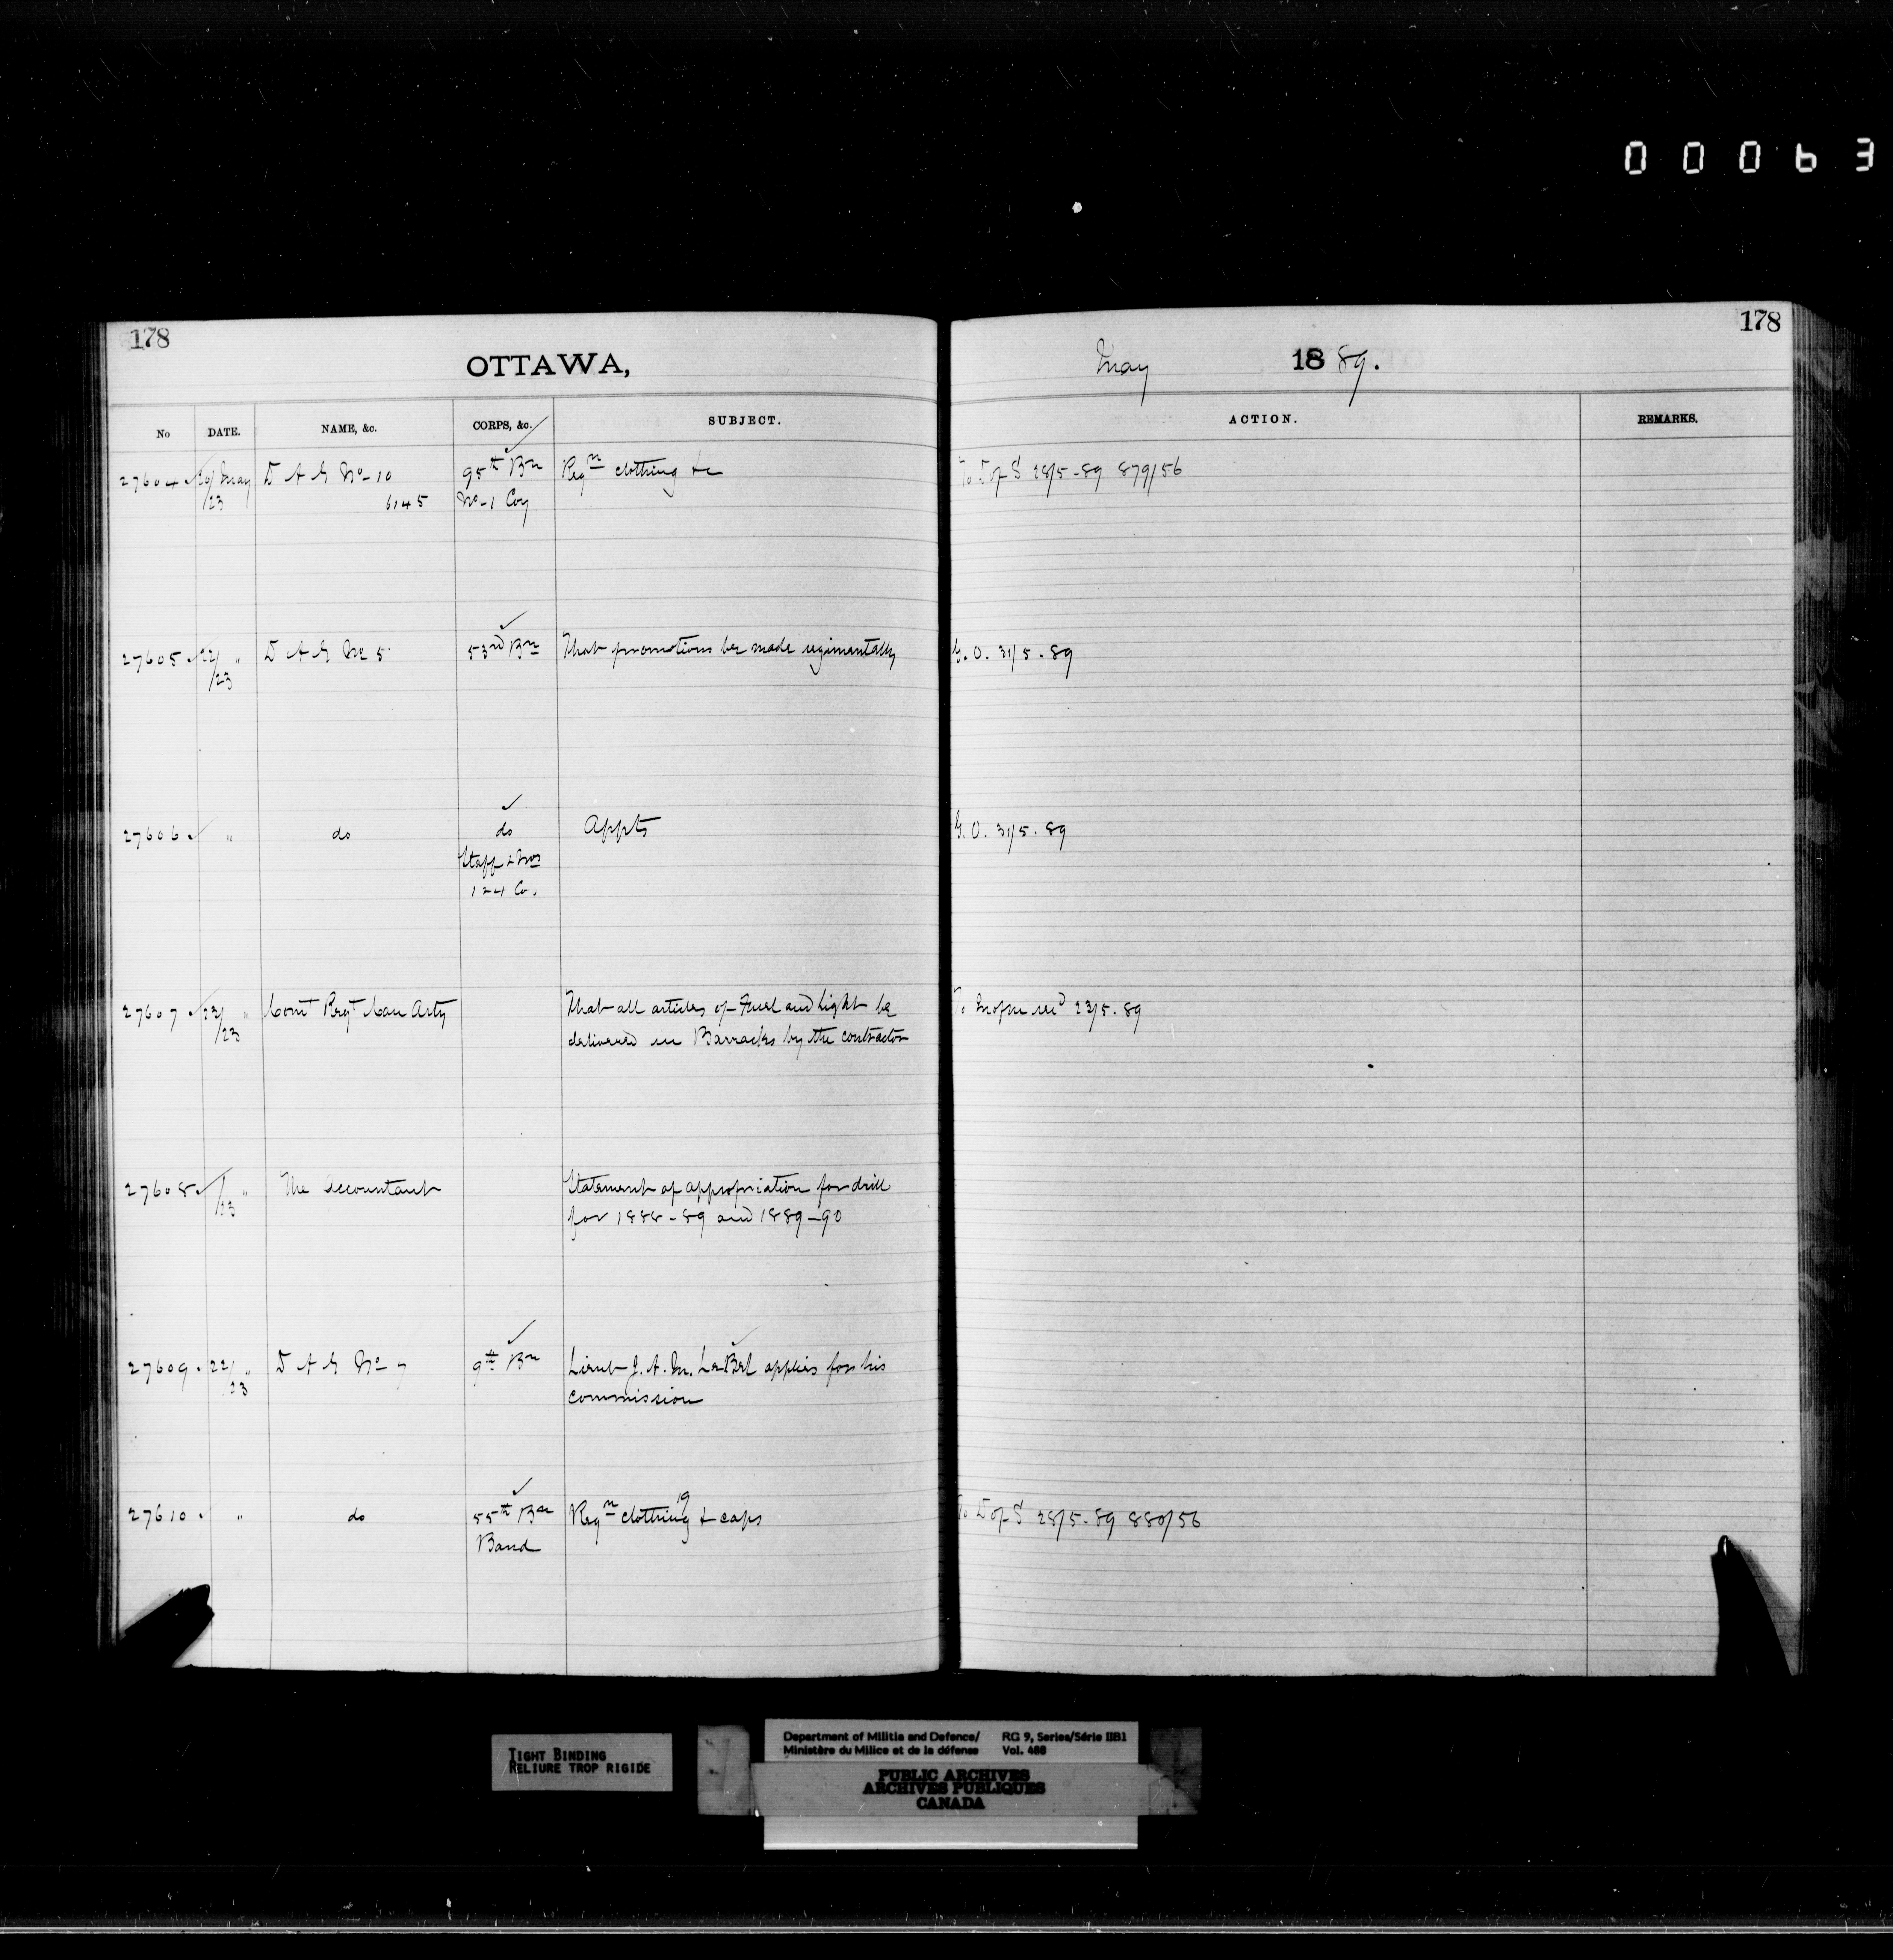 00063
178
178
OTTAWA,
May 1889.
No DATE. NAME, &c. CORPS, &c. SUBJECT. ACTION. REMARKS.
27604 20/ May D A G No 10 95th Bn Reqn clothing &c To D of S 28/5-89 879/56
/23 6145 No-1 Coy
27605 22/ " D A G No 5 53rd Bn That promotions be made regimentally G.O. 31/5.89
/23
27606 " do do Appts G.O. 31/5.89
Staff & Nos
1 2 4 Co.
27607 23/ " Comt Regt Can Arty That all articles of Fuel and light be 23/5.89
/23 delivered in Barracks by the contractor
27608 / " The Accountant Statement of appropriation for drill
/23 for 1888-89 and 1889-90
27609 22/ " D A G No 7 9th Bn Lieut J. A. M. LeBel applies for his
23 commission
27610 " do 55th Bn Reqn 19 clothing & caps To D of S 28/5-89 880/56
Band
TIGHT BINDING
RELIURE TROP RIGIDE
Department of Militia and Defence/ RG 9, Series/Série IIB1
Ministère du Milice et de la défense Vol. 488
PUBLIC ARCHIVES
ARCHIVES PUBLIQUES
CANADA